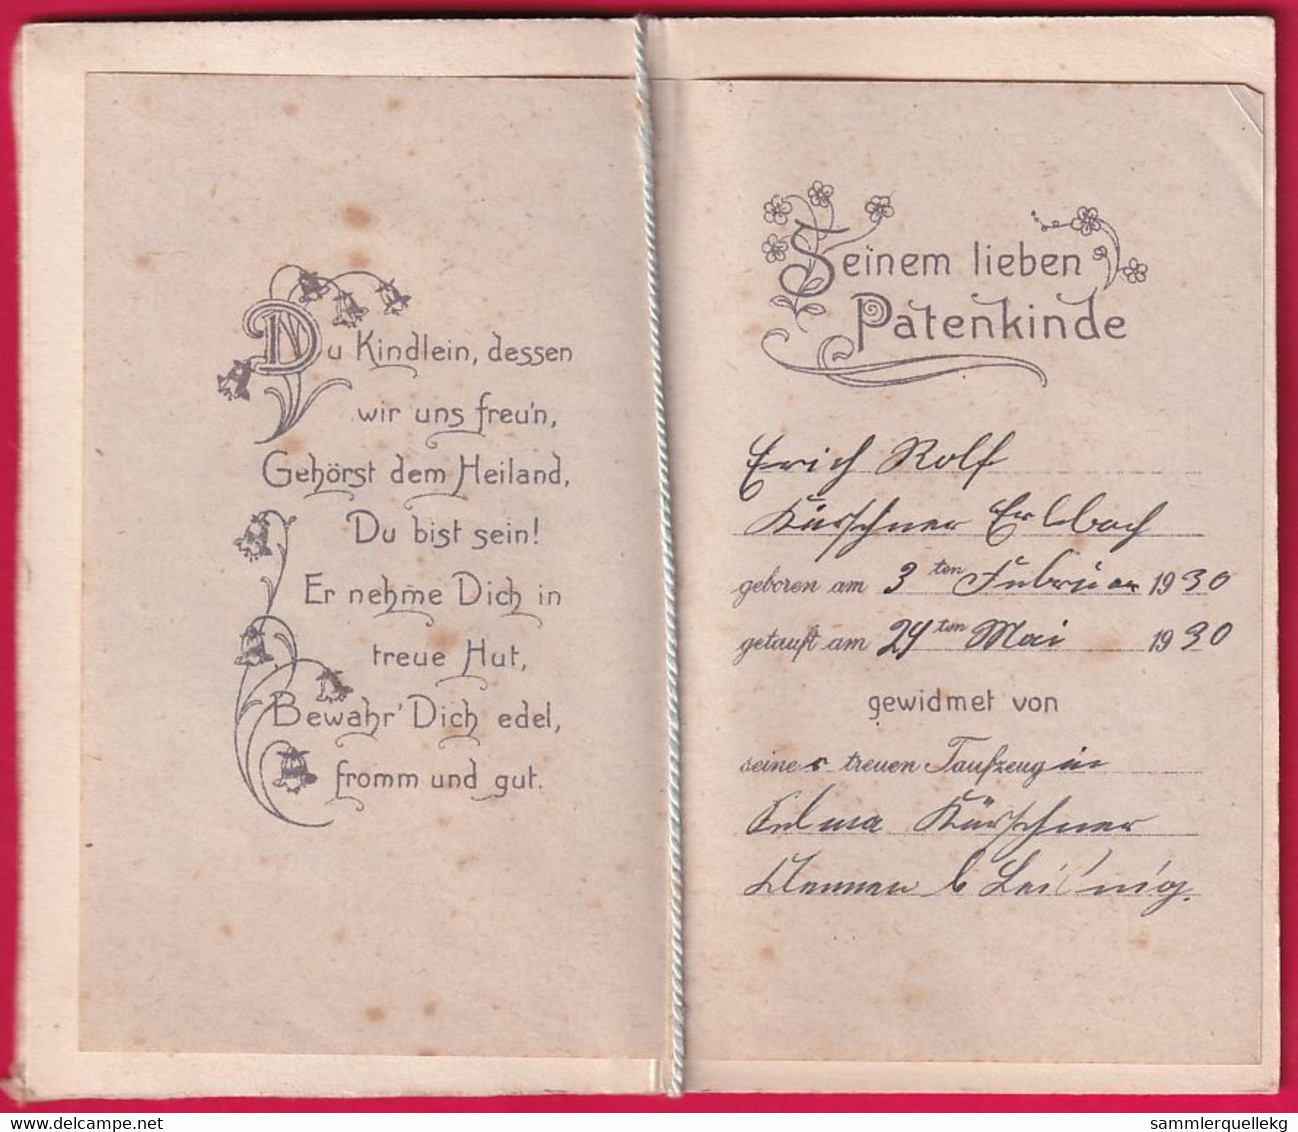 Du Kindlein, dessen
wir uns freu'n,
Gehörst dem Heiland,
Du bist sein!
Er nehme Dich in
treue Hut,
Bewahr' Dich edel,
fromm und gut.
Seinem lieben
Patenkinde
Erich Rolf
Kürschner Erlbach
geboren am 3ten Februar 1930
getauft am 29ten Mai 1930
gewidmet von
seiner treuen Taufzeugin
Kürschner
b
WWW.SAMMLERQUELLE.COM
sammlerquellekg